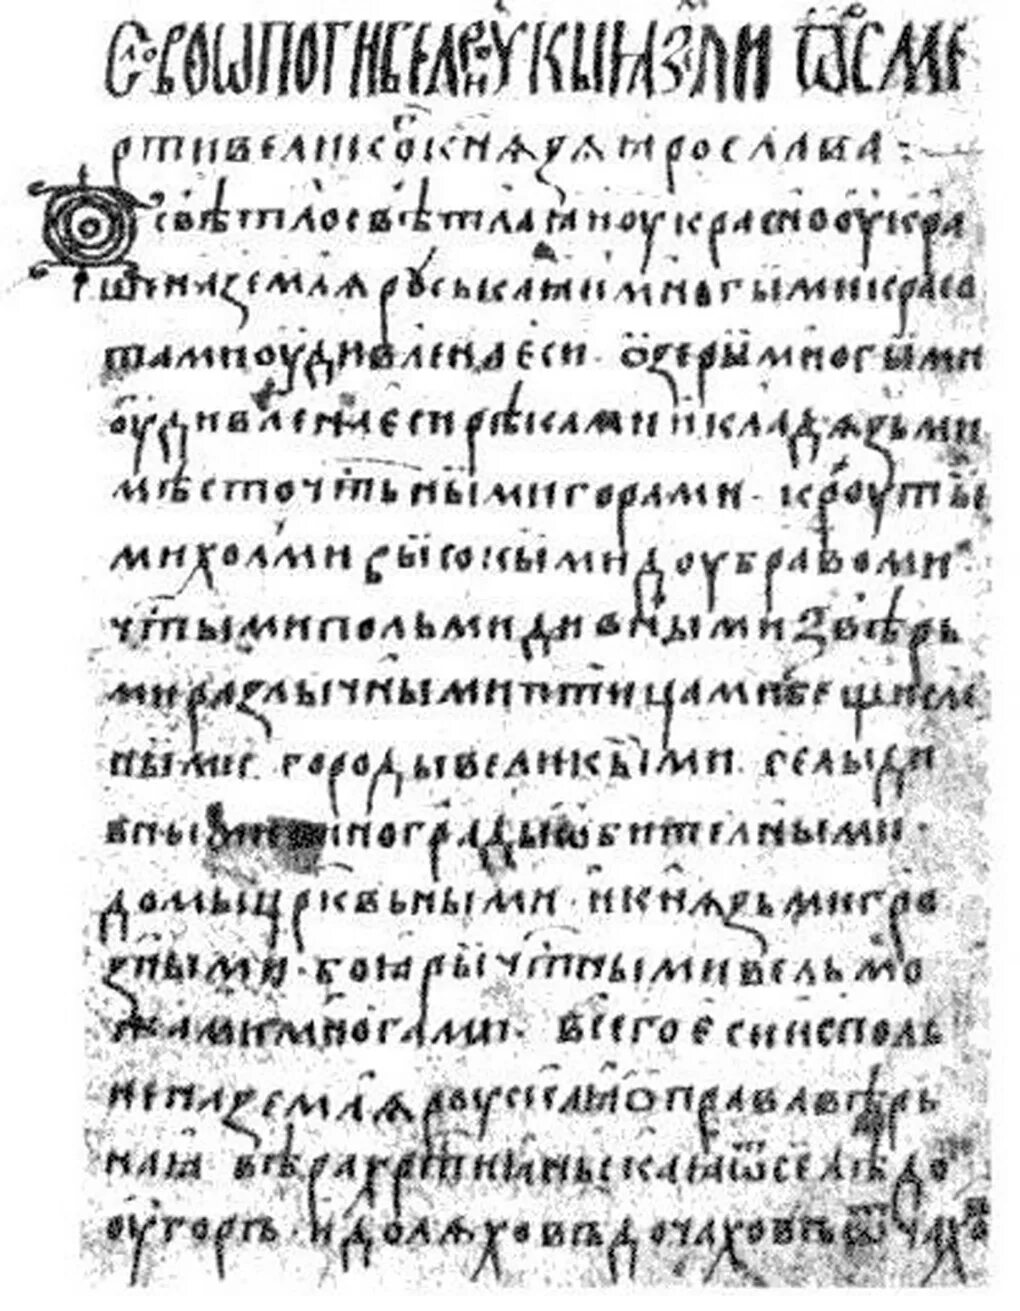 Слово ѡ погибели Рускыꙗ земли ѿ сме
рти великог кнѧзѧ ꙗрослава
Ѡ свѣтло свѣтлаꙗ и оукрасно оукра
шена землѧ руськаꙗ и многыми красо
тами оудивлена еси ѻзеры многыми
оудивлена еси рѣками и кладѧзьми
мѣсточтьными горами крѹты
ми холми высокыми доубравоми
чтыми польми дивными звѣрь
ми разлычными птицами бещисле
ными городы великыми селы ди
вными винограды ѡбителными
домы црквьными и кнѧзьми гро
зными боꙗры чтными вельмо
жами многами всего еси исполь
нена землѧ роусскаꙗ ѻ прававѣрь
наꙗ вѣра хртиꙗньскаꙗ ѿселѣ до
оугоръ и до лѧховъ до чаховъ ѿ чахо